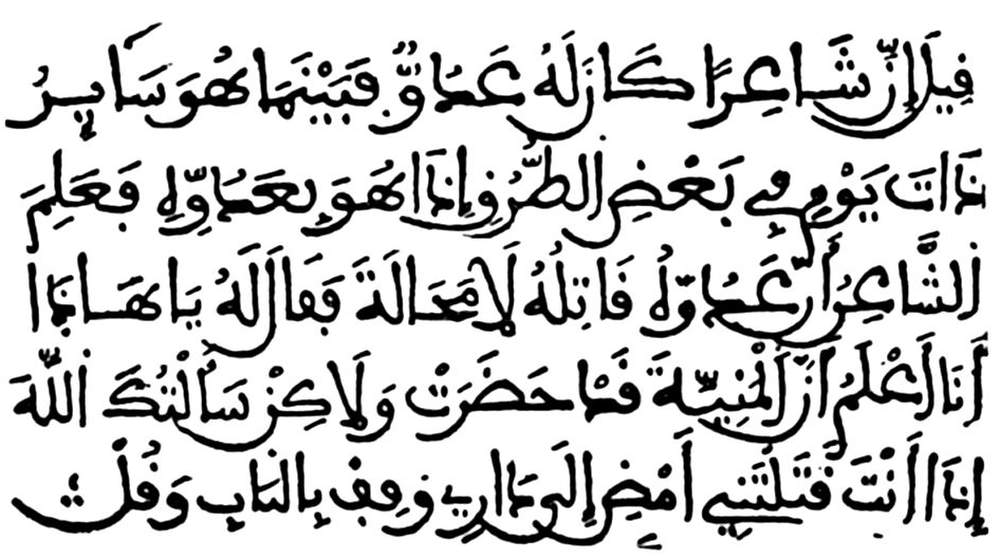 قِيلَ إِنَّ شَاعِرًا كَانَ لَهُ عَدُوٌّ فَبَيْنَمَا هُوَ سَايِرٌ
ذَاتَ يَوْمٍ فِي بَعْضِ الطُّرُقِ إِذَا هُوَ بِعَدُوِّهِ فَعَلِمَ
الشَّاعِرُ أَنَّ عَدُوَّهُ قَاتِلُهُ لَا مَحَالَةَ فَقَالَ لَهُ يَا هَذَا
أَنَا أَعْلَمُ أَنَّ الْمَنِيَّةَ قَدْ حَضَرَتْ وَلَاكِنْ سَأَلْتُكَ اللَّهَ
إِذَا أَنْتَ قَتَلْتَنِي أَمْضِ إِلَى دَارِي وَقِفْ بِالْبَابِ وَقُلْ